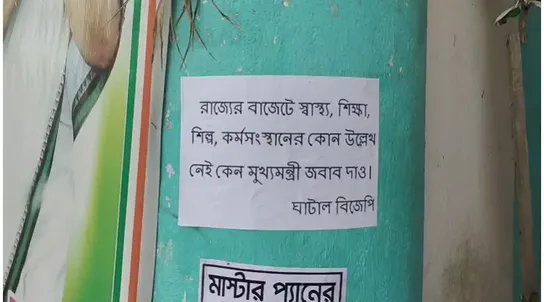 রাজ্যের বাজেটে স্বাস্থ্য, শিক্ষা,
শিল্প, কর্মসংস্থানের কোন উল্লেখ
নেই কেন মুখ্যমন্ত্রী জবাব দাও।
ঘাটাল বিজেপি
মাস্টার প্যানের